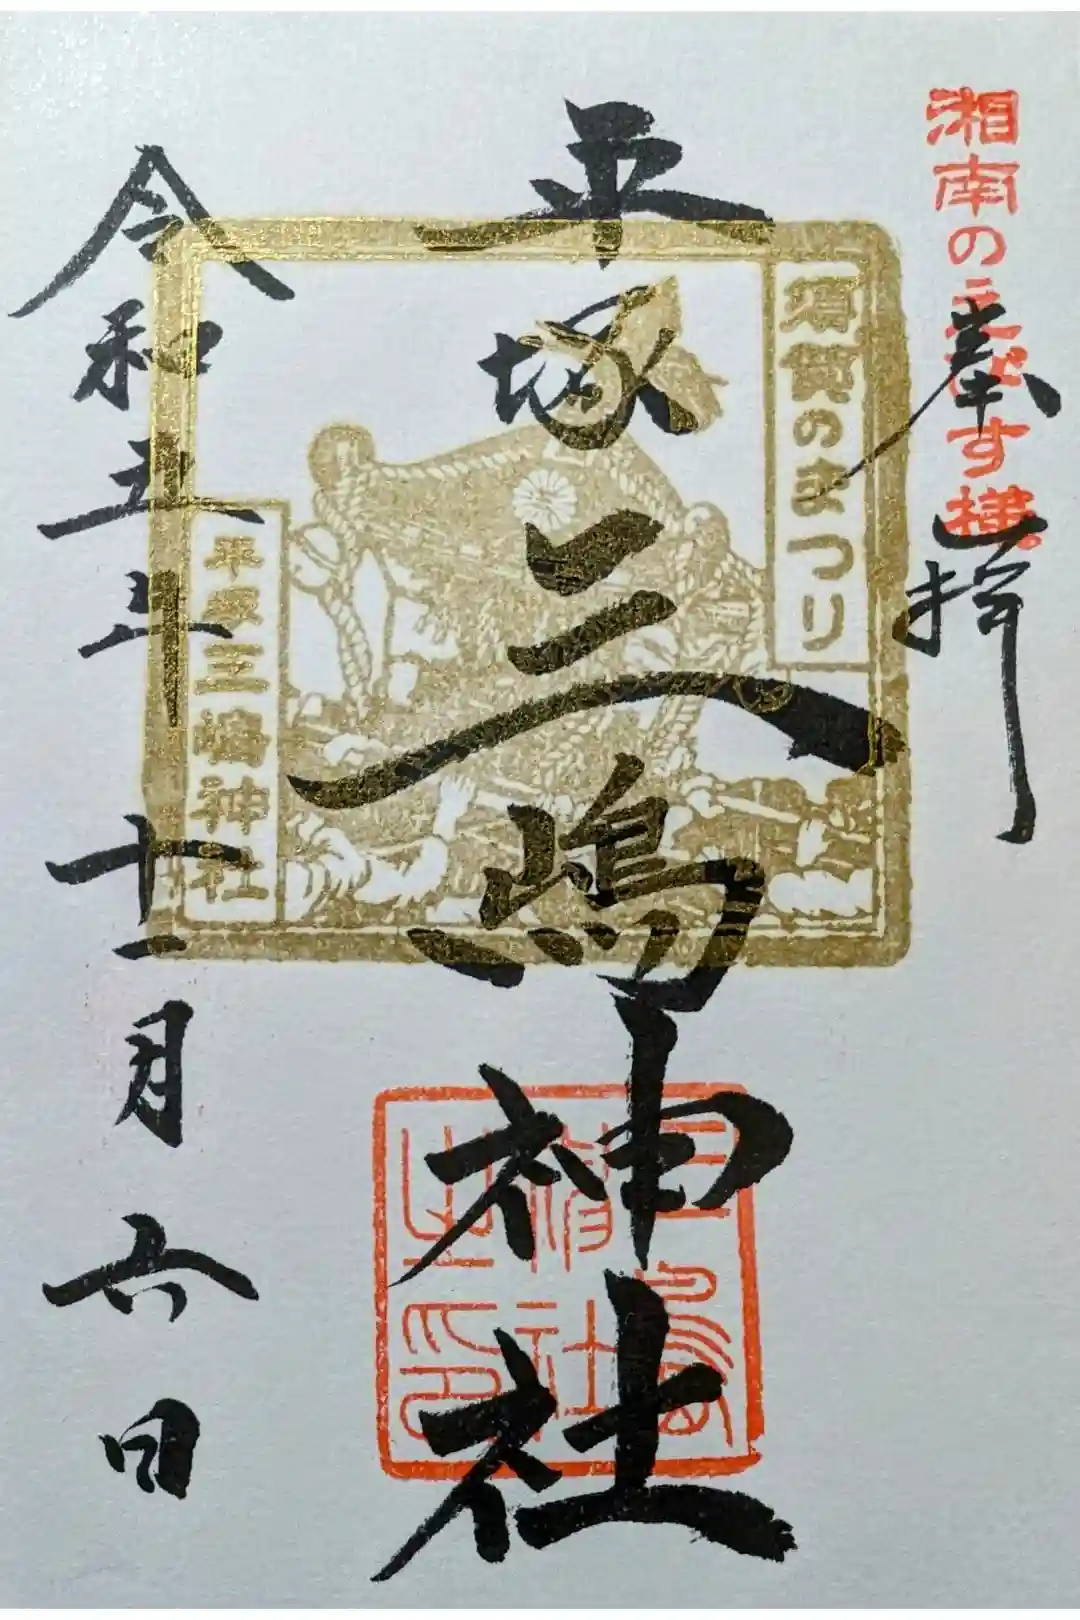 湘南のえびす様。
奉拝
須賀のまつり
平塚三嶋神社
平塚三嶋神社
三嶋
神社
之印
令和五年十一月六日